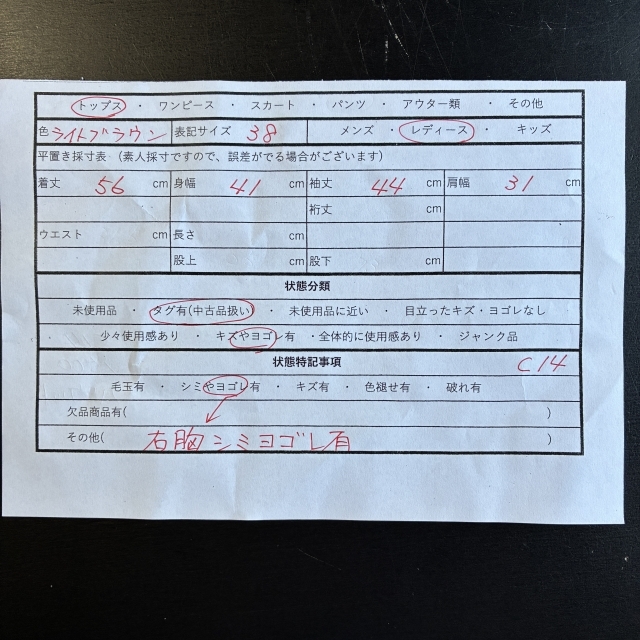 トップス ・ ワンピース ・ スカート ・ パンツ ・ アウター類 ・ その他
色 ライトブラウン 表記サイズ 38 メンズ ・ レディース ・ キッズ
平置き採寸表 （素人採寸ですので、誤差がでる場合がございます）
着丈 56 cm 身幅 41 cm 袖丈 44 cm 肩幅 31 cm
裄丈 cm
ウエスト cm 長さ cm
股上 cm 股下 cm
状態分類
未使用品 ・ タグ有(中古品扱い) ・ 未使用品に近い ・ 目立ったキズ・ヨゴレなし
少々使用感あり ・ キズやヨゴレ有 ・全体的に使用感あり ・ ジャンク品
状態特記事項 C14
毛玉有 ・ シミやヨゴレ有 ・ キズ有 ・ 色褪せ有 ・ 破れ有
欠品商品有( )
その他( 右胸シミヨゴレ有 )